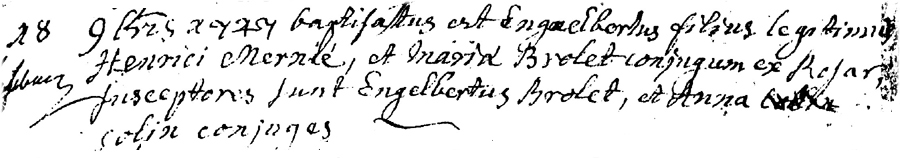 18 9bris 1747 baptisatus est Engelbertus filius legitimus
Henrici Mernié, et Maria Brolet conjugum ex Rosar
susceptores sunt Engelbertus Brolet, et Anna
Colin conjuges